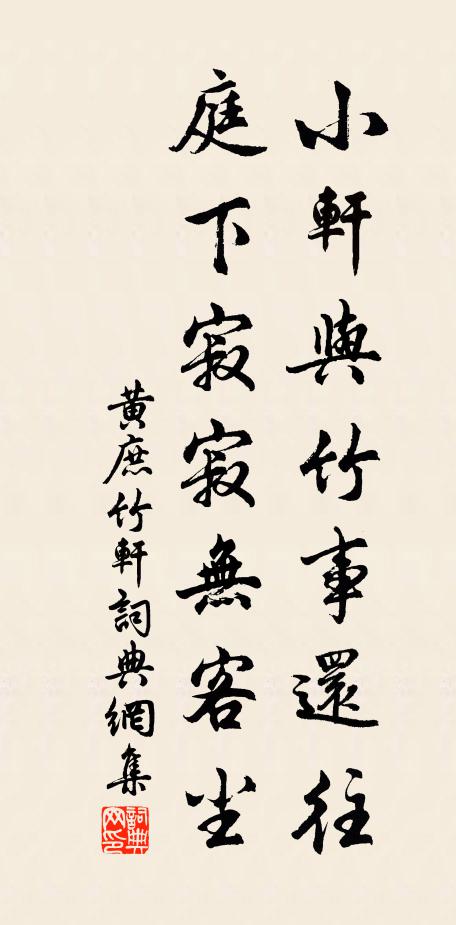 小軒與竹事還往
庭下寂寂無客尘
黃庶竹軒詞典網集
詞典网印